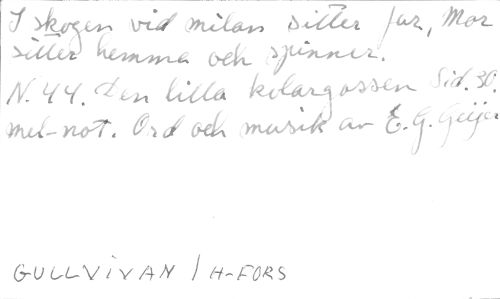 I skogen vid milan sitter far, Mor
sitter hemma och spinner.
N. 44. Den lilla kolargossen Sid. 30.
mel-not. Ord och musik av E. G. Geijer
GULLVIVAN / H-FORS